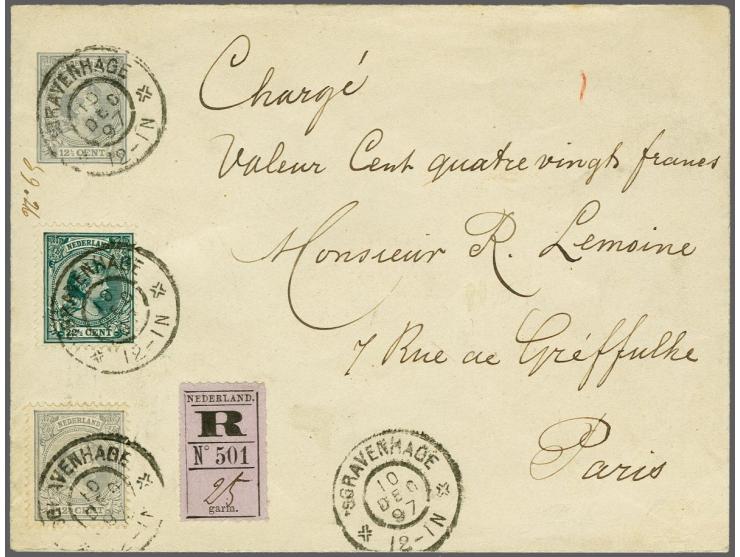 'SGRAVENHAGE
10
DEC
97
12-1N
12½ CENT
59.26
Chargé
Valeur Cent quatre vingts francs
Monsieur R. Lemoine
7 Rue de Gréffulhe
Paris
NEDERLAND
'SGRAVENHAGE
12-1N
22½ CENT
NEDERLAND
'SGRAVENHAGE
10
DEC
12-1N
12½ CENT
NEDERLAND.
R
N° 501
25
garm.
'SGRAVENHAGE
10
DEC
97
12-1N